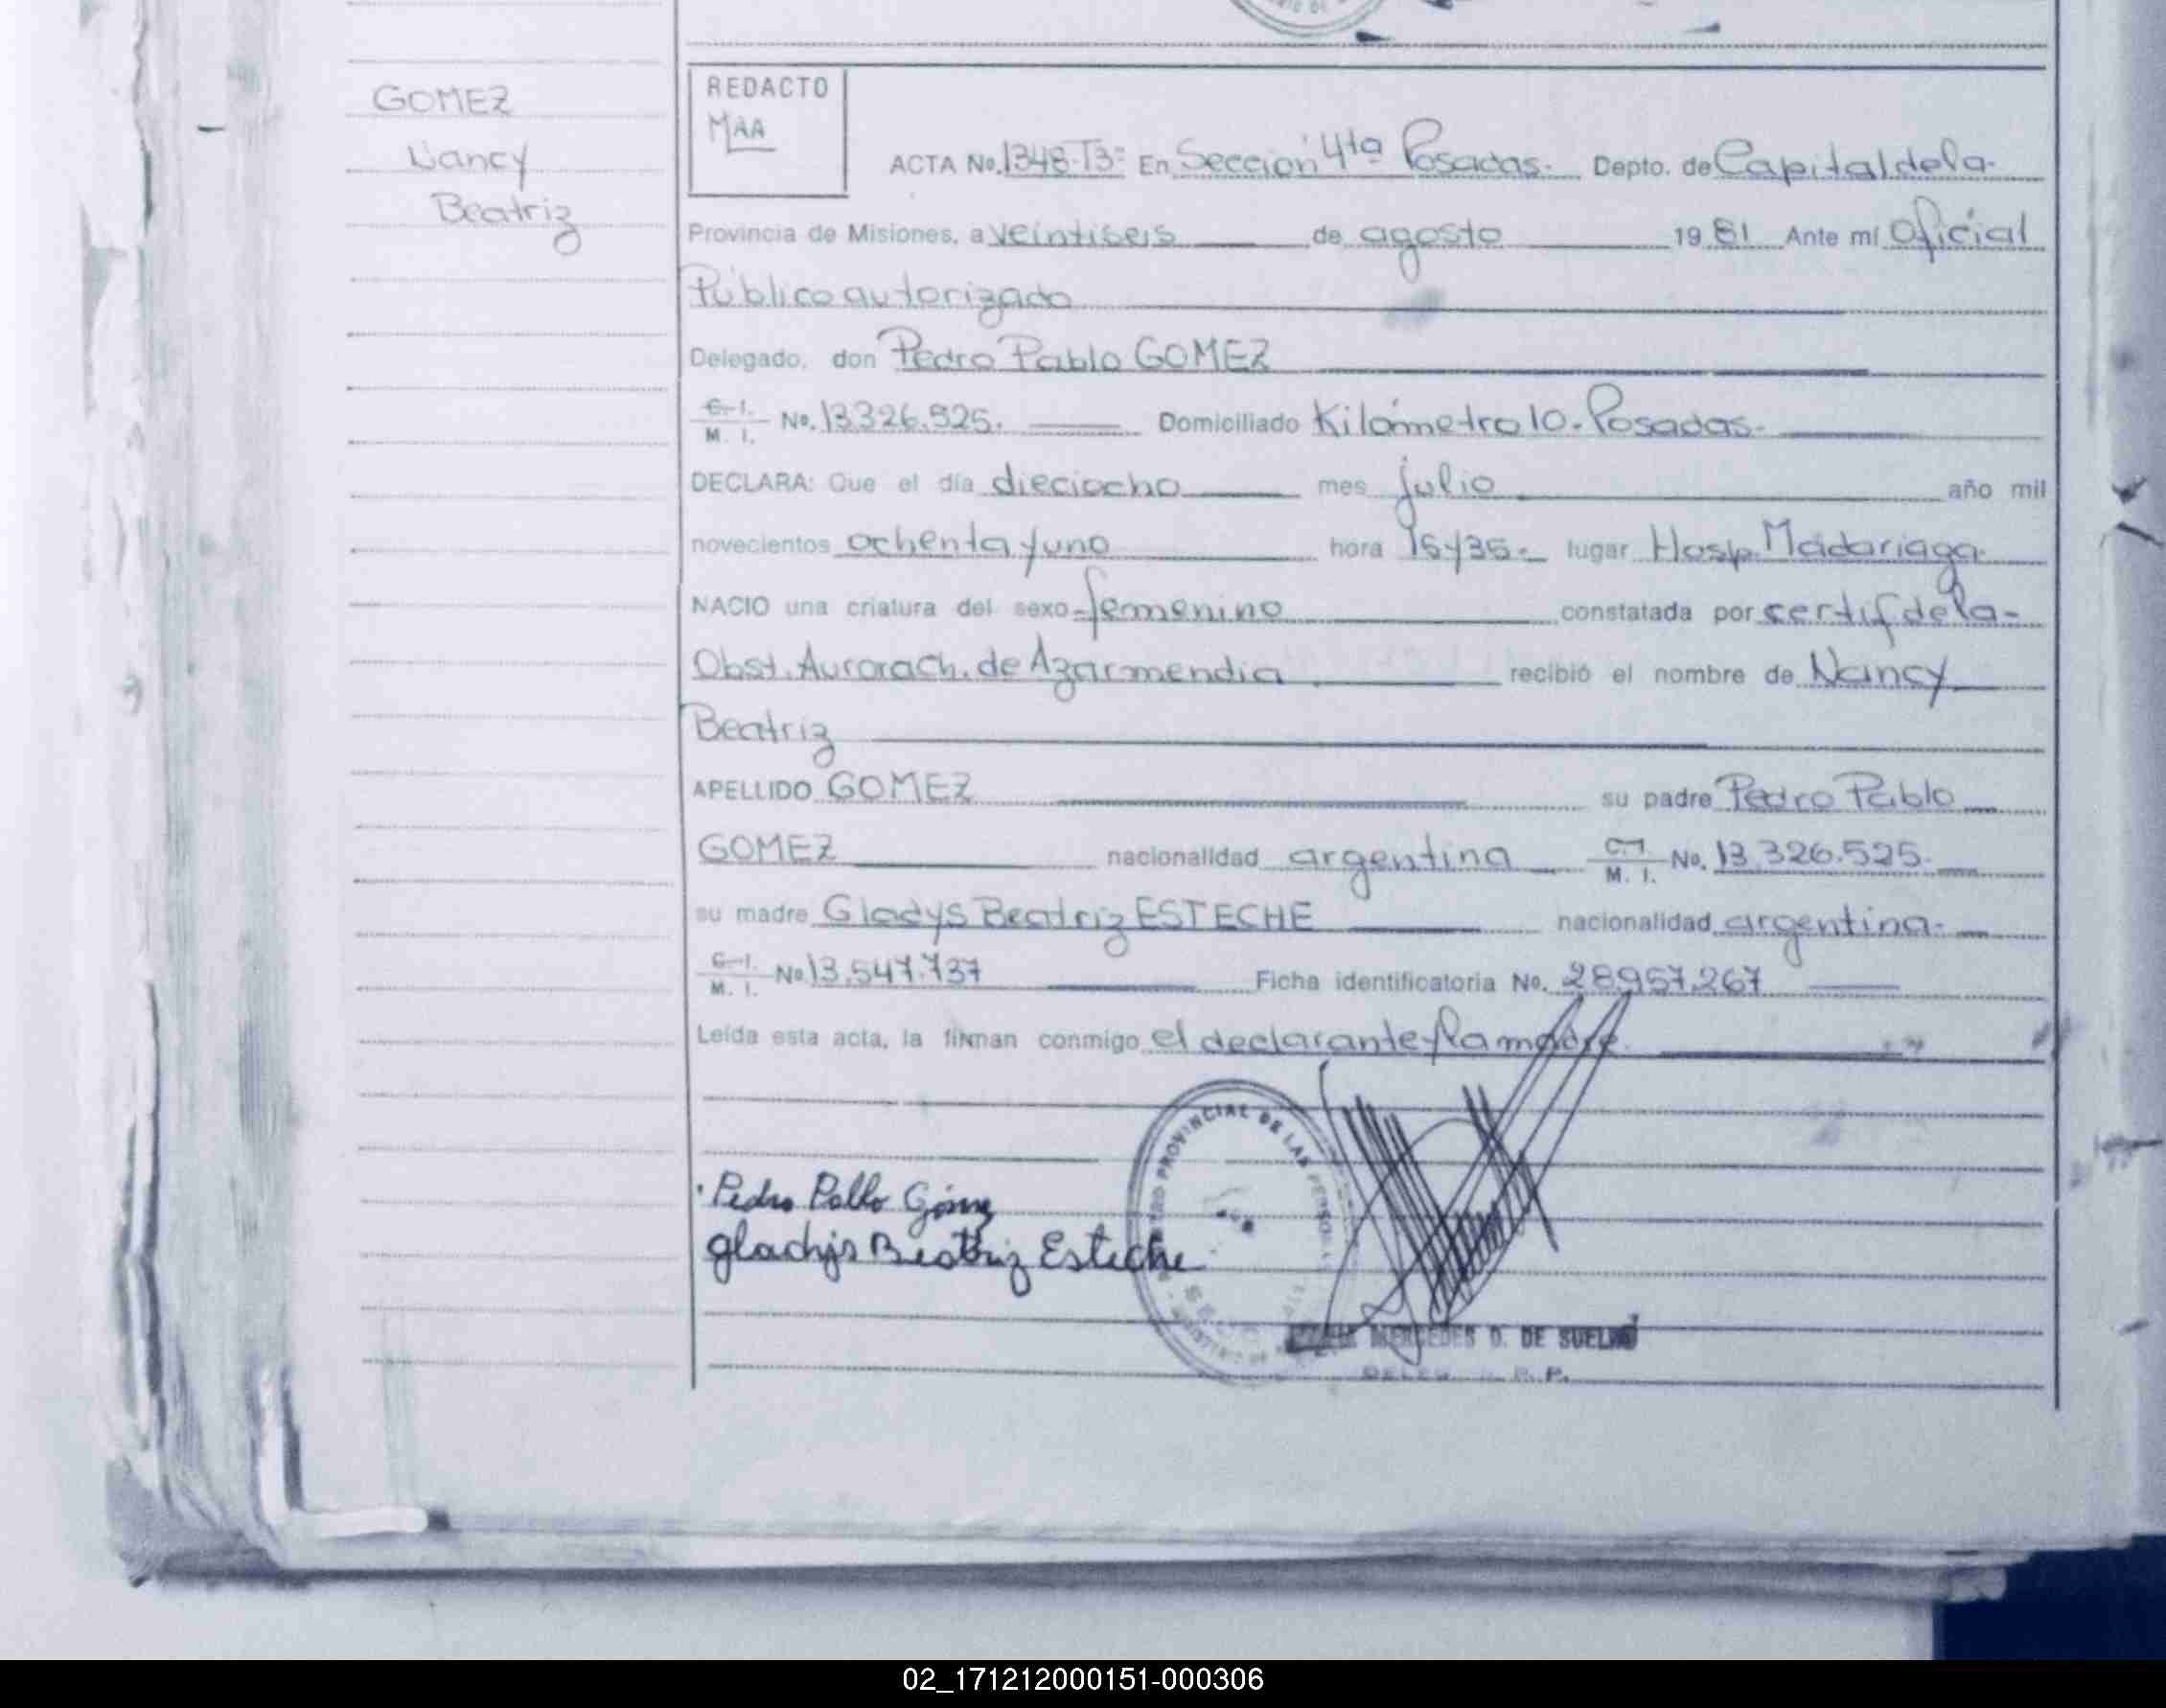 GOMEZ
Nancy
Beatriz
REDACTO
MAA
ACTA No. 1348-T3º En Sección 4ta Posadas. Depto. de Capital de la
Provincia de Misiones, a veintiseis de agosto 19 81 Ante mí Oficial
Público autorizado
Delegado, don Pedro Pablo GOMEZ
C. I. M. I. No. 13326.525. Domiciliado Kilómetro 10. Posadas.
DECLARA: Que el día dieciocho mes julio año mil
novecientos ochenta y uno hora 15y35.- lugar Hosp. Madariaga
NACIO una criatura del sexo femenino constatada por certif de la-
Obst. Aurora Ch. de Azarmendia recibió el nombre de Nancy
Beatriz
APELLIDO GOMEZ su padre Pedro Pablo
GOMEZ nacionalidad argentina C. I. M. I. No. 13.326.525.
su madre Gladys Beatriz ESTECHE nacionalidad argentina.
C. I. M. I. No. 13.547.737 Ficha identificatoria No. 28957.267
Leída esta acta, la firman conmigo el declarante y la madre.
PROVINCIAL DE LAS
Pedro Pablo Gómez
Gladys Beatriz Esteche
MERCEDES O. DE
02_171212000151-000306